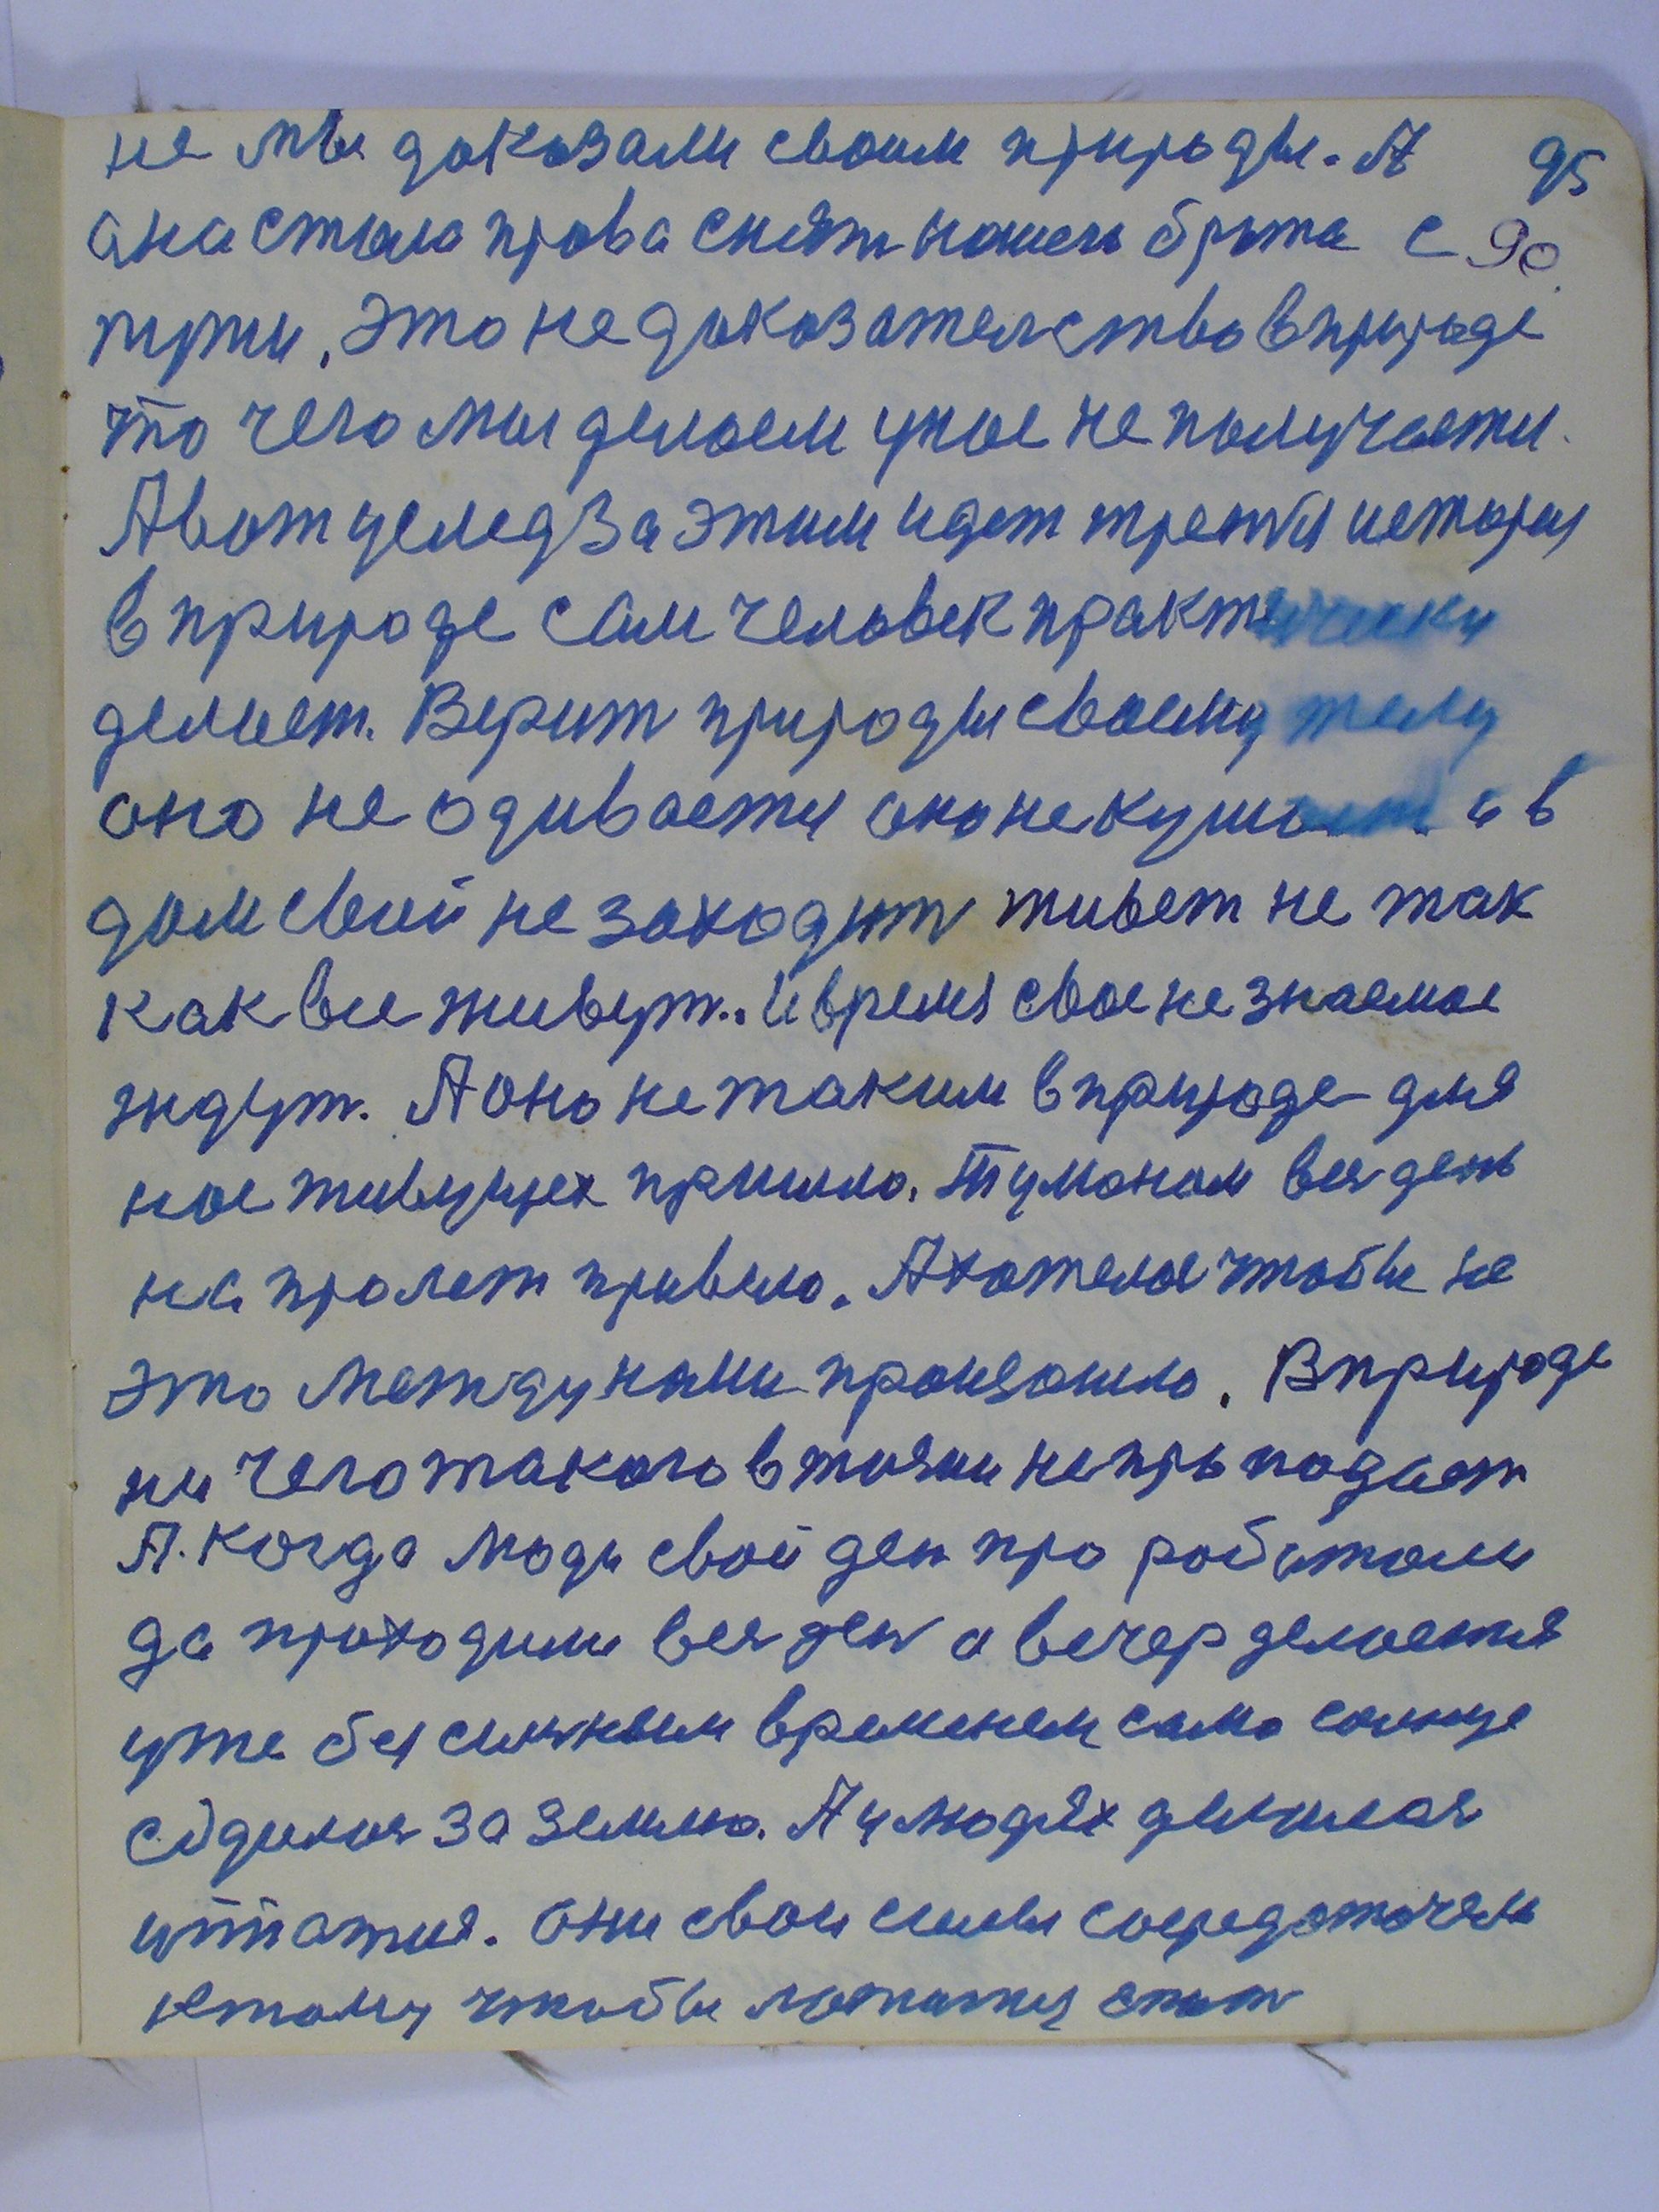 не мы доказали своим природы. А 95
она стала права снять нашего брата с 90
пути, это не доказателство в природе
то чего мы делаем у нас не получаети.
А вот услед за этим идет третья история
в природе сам человек практически
делает. Верит природы своему телу
оно не одивается оно не кушает и в
дом свой не заходит живет не так
как все живут.. И время свое не знаемое
ждут. А оно не таким в природе для
нас живущех пришло. Туманом вся день
на пролет привело. А хателос чтобы не
это между нами произошло. В природе
ни чего такого в жизни не препадает
А. когда люди свой ден про работали
да проходили вся ден а вечер делается
уже бессильным временем само солнце
содилося за землю. А у людях делилося
уставшия. Они свои силы сосредоточели
к тому чтобы ложатся спат